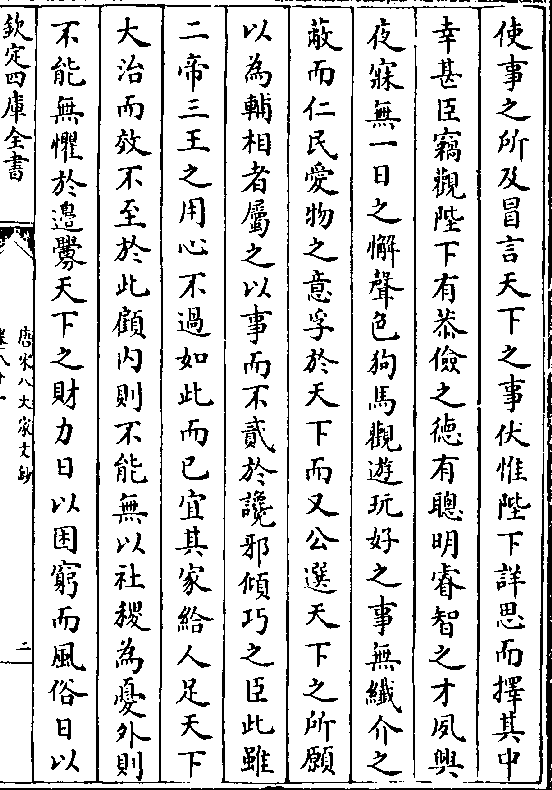 使事之所及冒言天下之事伏惟陛下詳思而擇其中
幸甚臣竊觀陛下有恭儉之德有聰明睿智之才夙興
夜寐無一日之懈聲色狗馬觀遊玩好之事無纖介之
蔽而仁民愛物之意孚於天下而又公選天下之所願
以為輔相者屬之以事而不貳於讒邪傾巧之臣此雖
二帝三王之用心不過如此而已宜其家給人足天下
大治而效不至於此顧内則不能無以社稷為憂外則
不能無懼於邉釁天下之財力日以困窮而風俗日以
欽定四庫全書
唐宋八大家文鈔
二